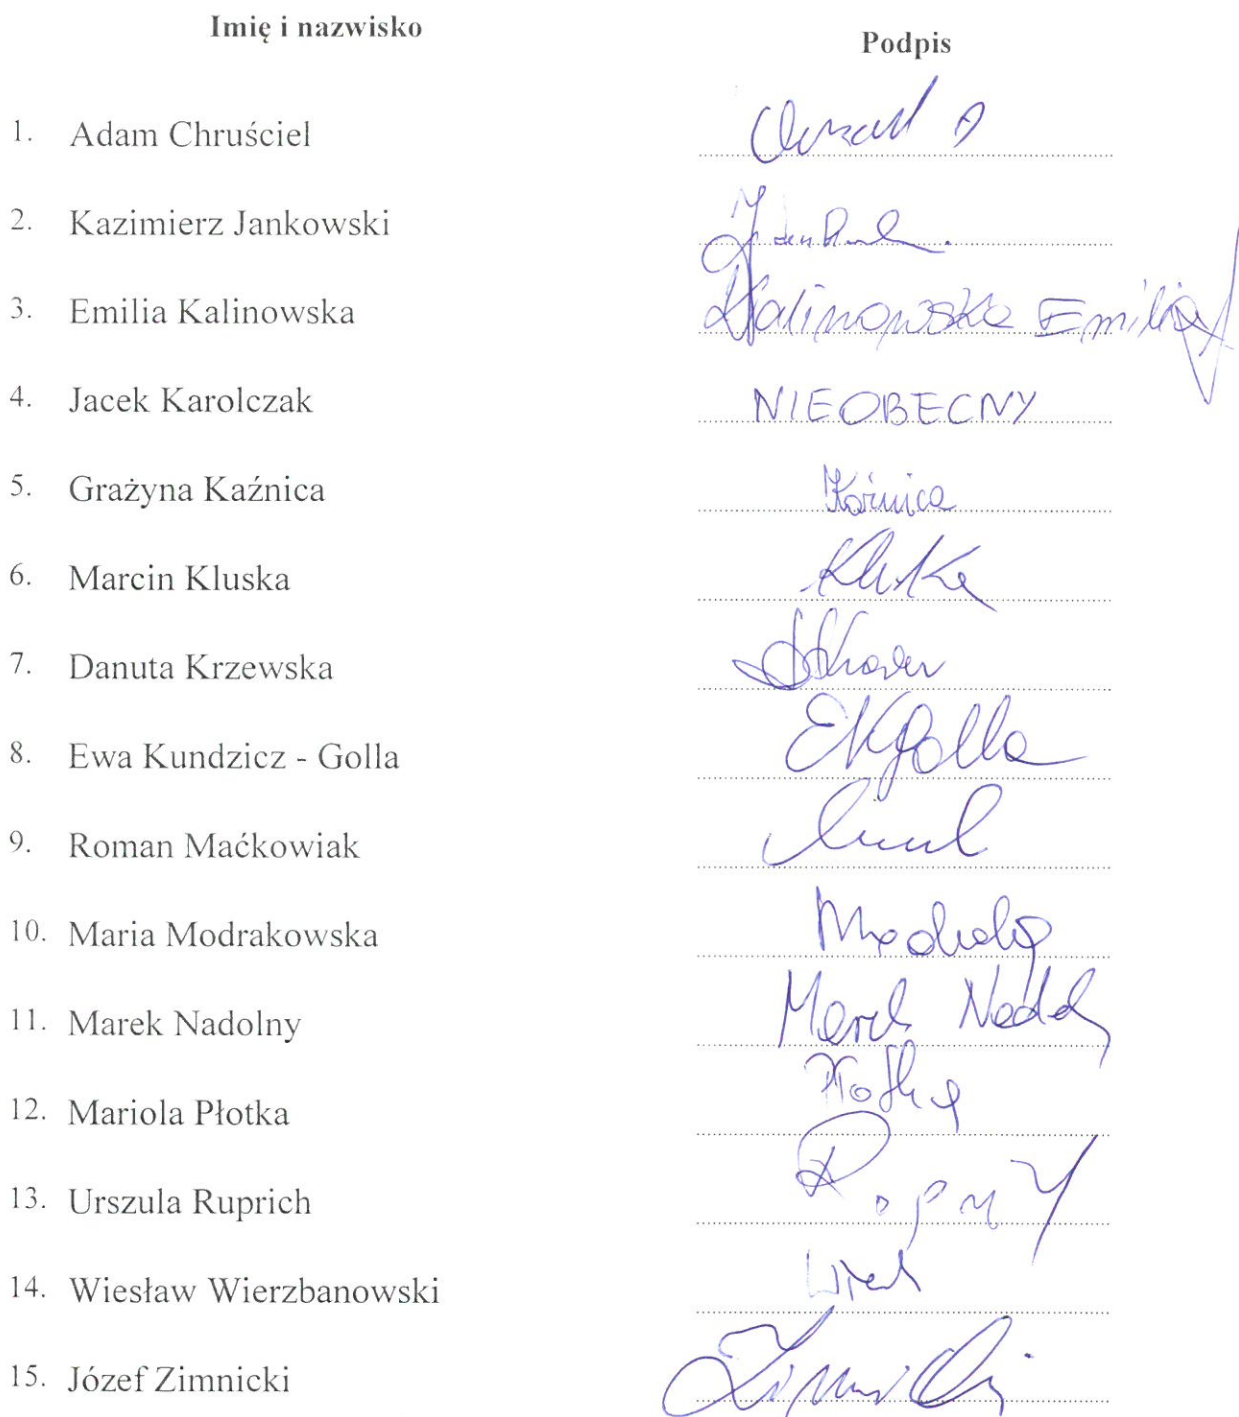 Imię i nazwisko Podpis
1. Adam Chruściel
2. Kazimierz Jankowski
3. Emilia Kalinowska Kalinowska Emilia
4. Jacek Karolczak NIEOBECNY
5. Grażyna Kaźnica Kaźnica
6. Marcin Kluska
7. Danuta Krzewska
8. Ewa Kundzicz - Golla EKGolla
9. Roman Maćkowiak
10. Maria Modrakowska
11. Marek Nadolny Marek
12. Mariola Płotka Płotka
13. Urszula Ruprich
14. Wiesław Wierzbanowski
15. Józef Zimnicki